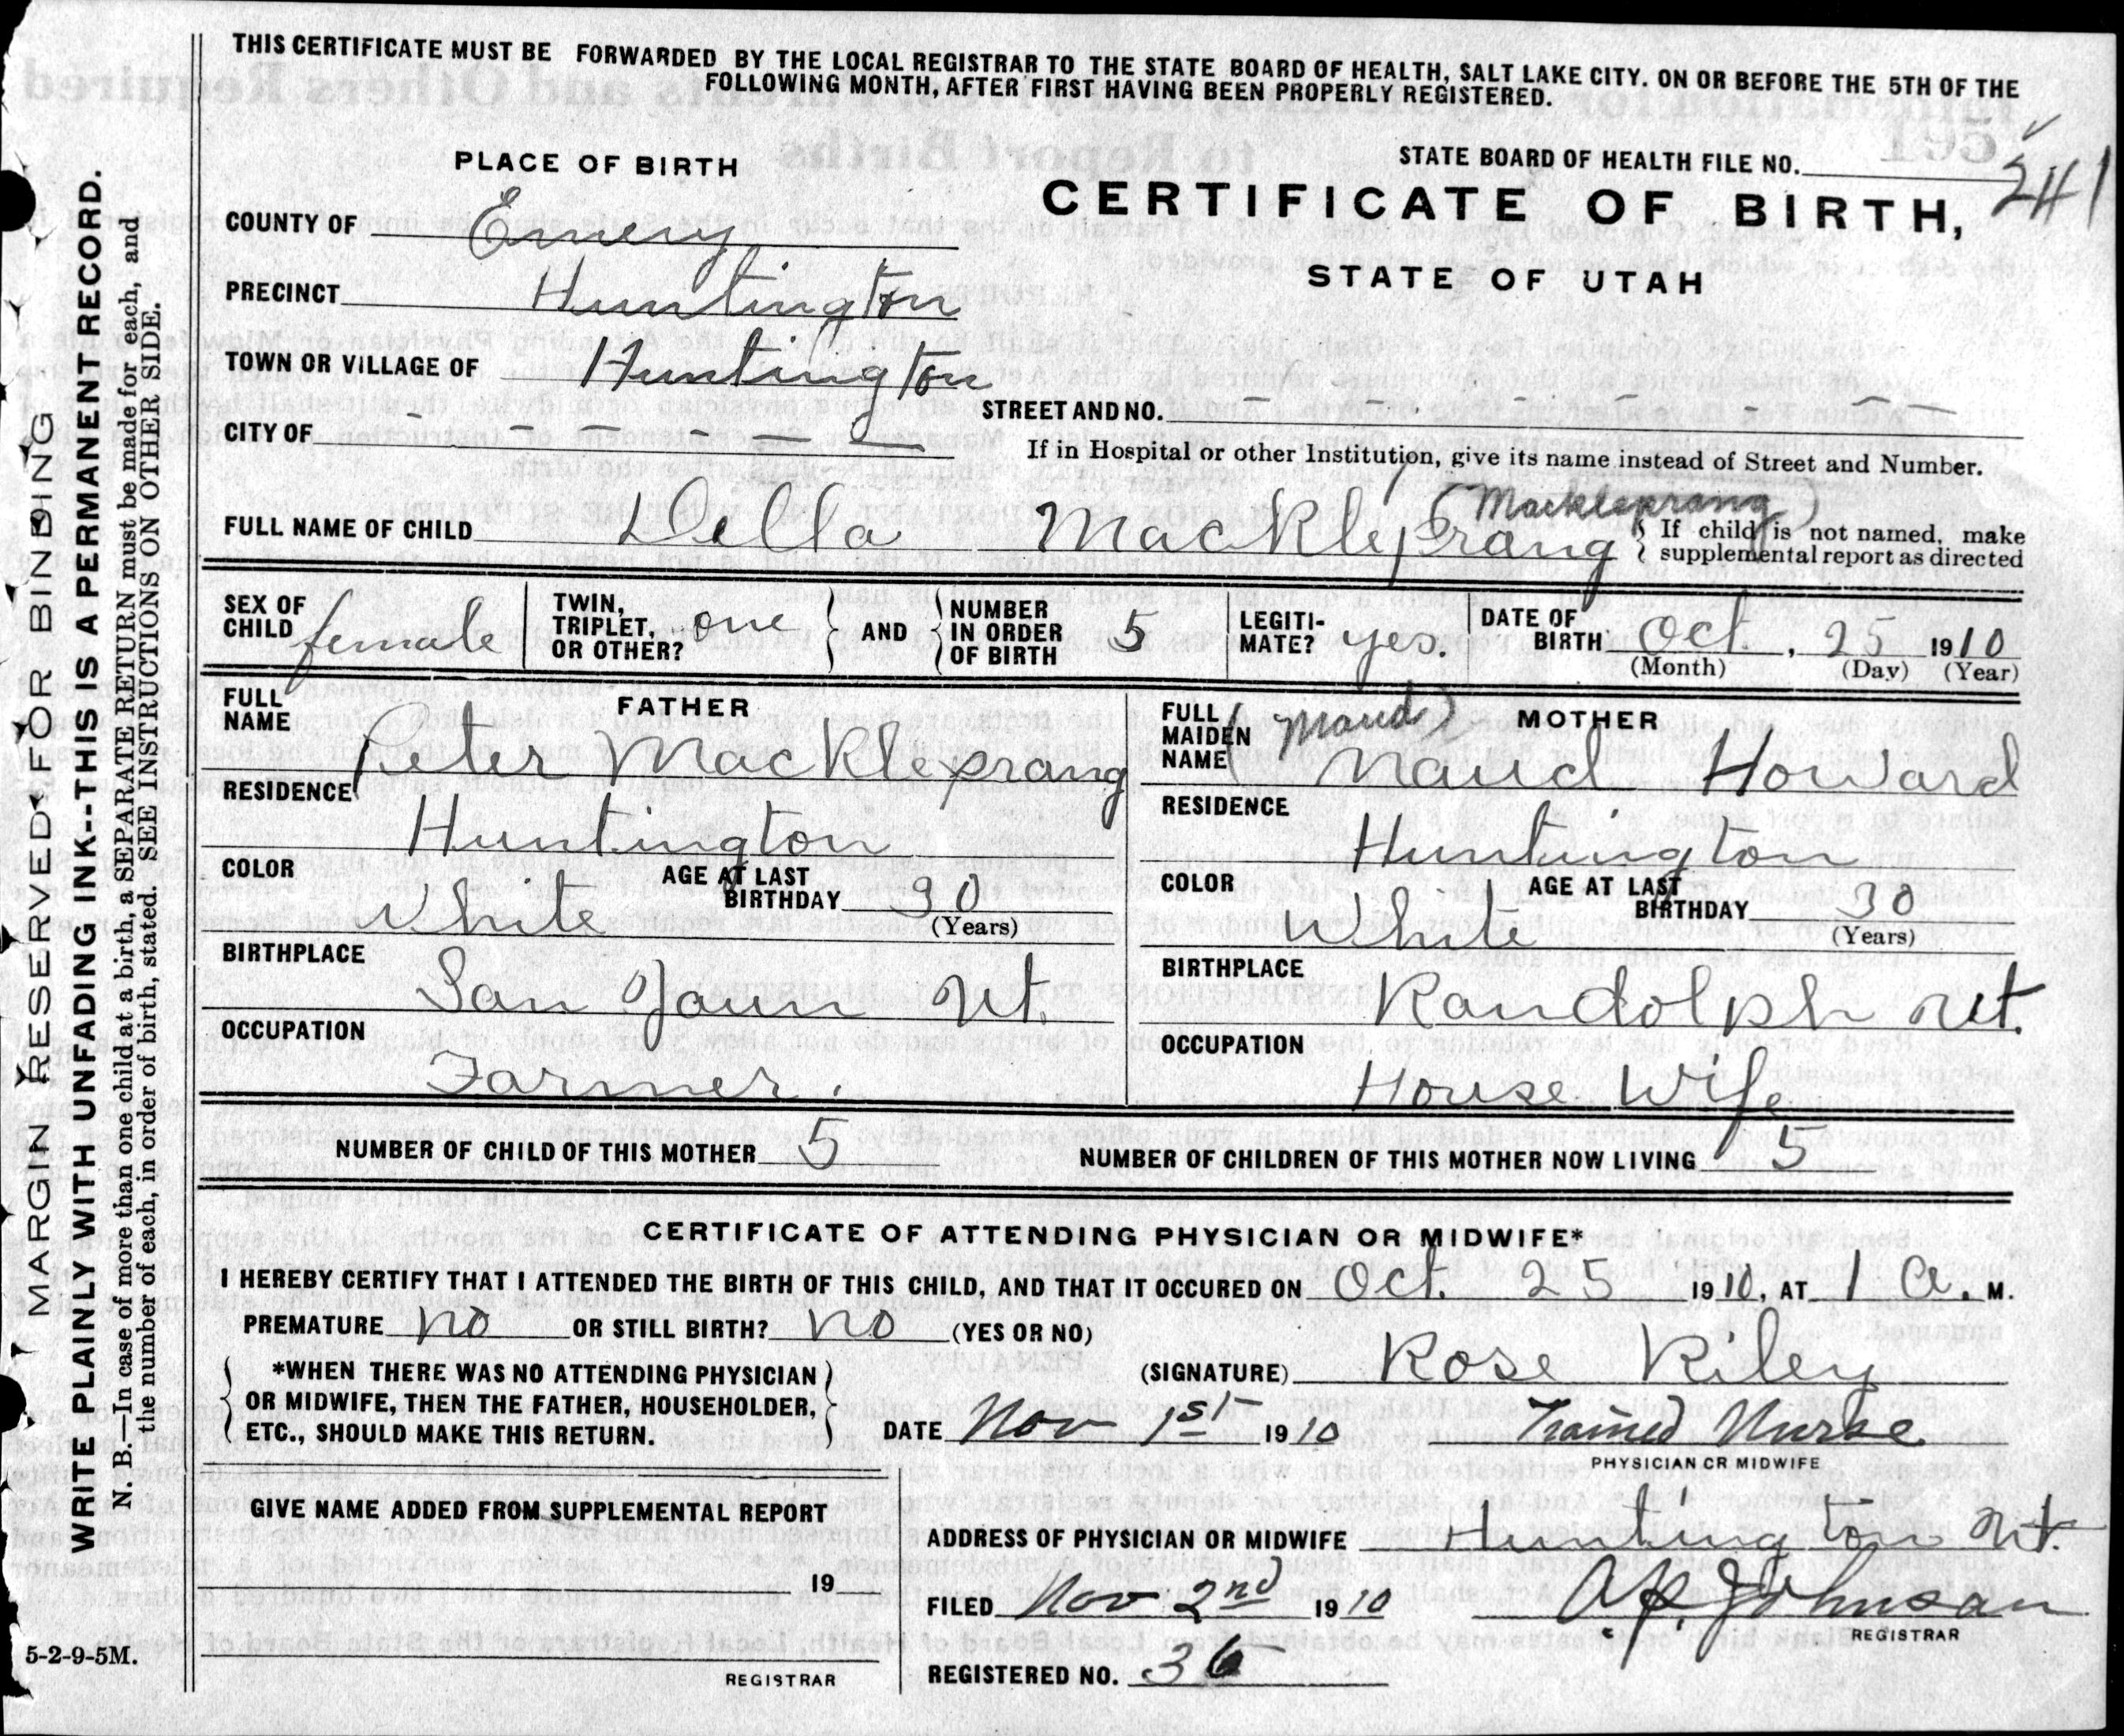 THIS CERTIFICATE MUST BE FORWARDED BY THE LOCAL REGISTRAR TO THE STATE BOARD OF HEALTH, SALT LAKE CITY. ON OR BEFORE THE 5TH OF THE
FOLLOWING MONTH, AFTER FIRST HAVING BEEN PROPERLY REGISTERED.
PLACE OF BIRTH
STATE BOARD OF HEALTH FILE NO. 241
CERTIFICATE OF BIRTH,
STATE OF UTAH
COUNTY OF Emery
PRECINCT Huntington
TOWN OR VILLAGE OF Huntington
STREET AND NO. - - - - - -
CITY OF - - - - -
If in Hospital or other Institution, give its name instead of Street and Number.
(Mackleprang)
FULL NAME OF CHILD Della Mackleprang
If child is not named, make
supplemental report as directed
SEX OF CHILD female
TWIN, TRIPLET, OR OTHER? one
AND
NUMBER IN ORDER OF BIRTH 5
LEGITI-MATE? yes.
DATE OF BIRTH Oct. , 25 1910
(Month) (Day) (Year)
FATHER
FULL NAME Peter Mackleprang
RESIDENCE Huntington
COLOR White
AGE AT LAST BIRTHDAY 30
(Years)
BIRTHPLACE San Jaun Ut.
OCCUPATION Farmer.
MOTHER
FULL MAIDEN NAME (Maud) Maud Howard
RESIDENCE Huntington
COLOR White
AGE AT LAST BIRTHDAY 30
(Years)
BIRTHPLACE Randolph Ut.
OCCUPATION House Wife
NUMBER OF CHILD OF THIS MOTHER 5
NUMBER OF CHILDREN OF THIS MOTHER NOW LIVING 5
CERTIFICATE OF ATTENDING PHYSICIAN OR MIDWIFE*
I HEREBY CERTIFY THAT I ATTENDED THE BIRTH OF THIS CHILD, AND THAT IT OCCURED ON Oct. 25 1910, AT 1 a. M.
PREMATURE no OR STILL BIRTH? no (YES OR NO)
*WHEN THERE WAS NO ATTENDING PHYSICIAN
OR MIDWIFE, THEN THE FATHER, HOUSEHOLDER,
ETC., SHOULD MAKE THIS RETURN.
(SIGNATURE) Rose Riley
DATE Nov 1st 1910 Trained Nurse
PHYSICIAN OR MIDWIFE
GIVE NAME ADDED FROM SUPPLEMENTAL REPORT
19
REGISTRAR
ADDRESS OF PHYSICIAN OR MIDWIFE Huntington Ut.
FILED Nov 2nd 1910 A.P. Johnson
REGISTRAR
REGISTERED NO. 36
5-2-9-5M.
MARGIN RESERVED FOR BINDING
WRITE PLAINLY WITH UNFADING INK--THIS IS A PERMANENT RECORD.
N. B.—In case of more than one child at a birth, a SEPARATE RETURN must be made for each, and
the number of each, in order of birth, stated. SEE INSTRUCTIONS ON OTHER SIDE.